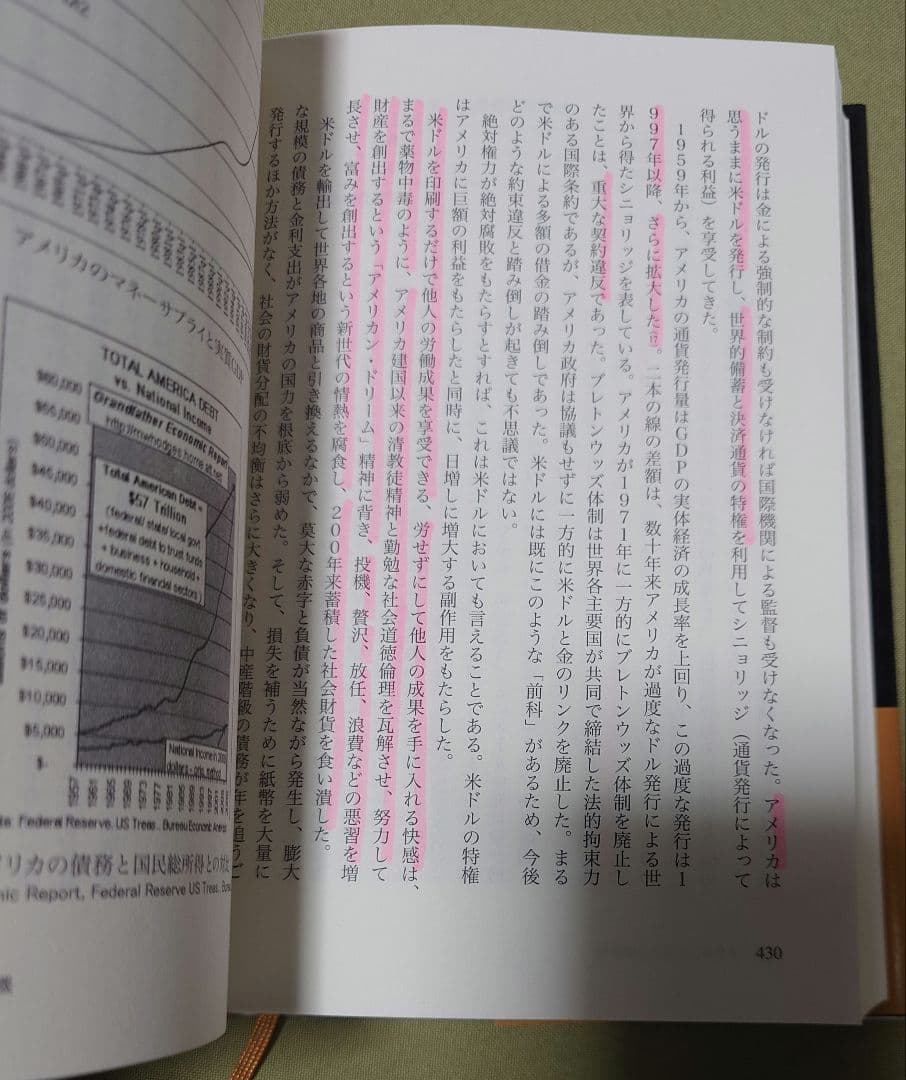 ドルの発行は金による強制的な制約も受けなければ国際機関による監督も受けなくなった。アメリカは
思うままに米ドルを発行し、世界的備蓄と決済通貨の特権を利用してシニョリッジ（通貨発行によって
得られる利益）を享受してきた。
１９５９年から、アメリカの通貨発行量はＧＤＰの実体経済の成長率を上回り、この過度な発行は１
９９７年以降、さらに拡大した(17)。二本の線の差額は、数十年来アメリカが過度なドル発行による世
界から得たシニョリッジを表している。アメリカが１９７１年に一方的にブレトンウッズ体制を廃止し
たことは、重大な契約違反であった。ブレトンウッズ体制は世界各主要国が共同で締結した法的拘束力
のある国際条約であるが、アメリカ政府は協議もせずに一方的に米ドルと金のリンクを廃止した。まる
で米ドルによる多額の借金の踏み倒しであった。米ドルには既にこのような「前科」があるため、今後
どのような約束違反と踏み倒しが起きても不思議ではない。
絶対権力が絶対腐敗をもたらすとすれば、これは米ドルにおいても言えることである。米ドルの特権
はアメリカに巨額の利益をもたらしたと同時に、日増しに増大する副作用をもたらした。
米ドルを印刷するだけで他人の労働成果を享受できる、労せずにして他人の成果を手に入れる快感は、
まるで薬物中毒のように、アメリカ建国以来の清教徒精神と勤勉な社会道徳倫理を瓦解させ、努力して
財産を創出するという「アメリカン・ドリーム」精神に背き、投機、贅沢、放任、浪費などの悪習を増
長させ、富みを創出するという新世代の情熱を腐食し、２００年来蓄積した社会財貨を食い潰した。
米ドルを輸出して世界各地の商品と引き換えるなかで、莫大な赤字と負債が当然ながら発生し、膨大
な規模の債務と金利支出がアメリカの国力を根底から弱めた。そして、損失を補うために紙幣を大量に
発行するほか方法がなく、社会の財貨分配の不均衡はさらに大きくなり、中産階級の債務が年を追うご
430
アメリカのマネーサプライと実質GDP
TOTAL AMERICA DEBT
vs. National Income
Grandfather Economic Report
http://mwhodges.home.att.net
Total American Debt =
$57 Trillion
(federal/ state/ local govt
+federal debt to trust funds
+ business + household +
domestic financial sectors )
$60,000
$55,000
$50,000
$45,000
$40,000
$35,000
$30,000
$25,000
$20,000
$15,000
$10,000
$5,000
$-
National Income in
Federal Reserve, US Treas., Bureau Economic
メリカの債務と国民総所得との対比
mic Report, Federal Reserve US Treas.